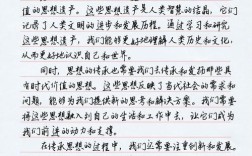 值的思想遗产。这些思想遗产是人类智慧的结晶，它们
记录了人类文明的进步和发展历程。通过学习和研究
这些思想遗产，我们能够更好地理解人类历史和文化，
从而更好地认识自己和世界。
同时，思想的传承也需要我们去传承和发扬那些具
有时代价值的思想。这些思想反映了当代社会的需求和
问题，能够为我们提供新的思考和解决方案。我们需要
将这些思想融入到自己的生活和工作中去，让它们成为
我们前进的动力和支撑。
在传承思想的过程中，我们还需要注重创新和发展。